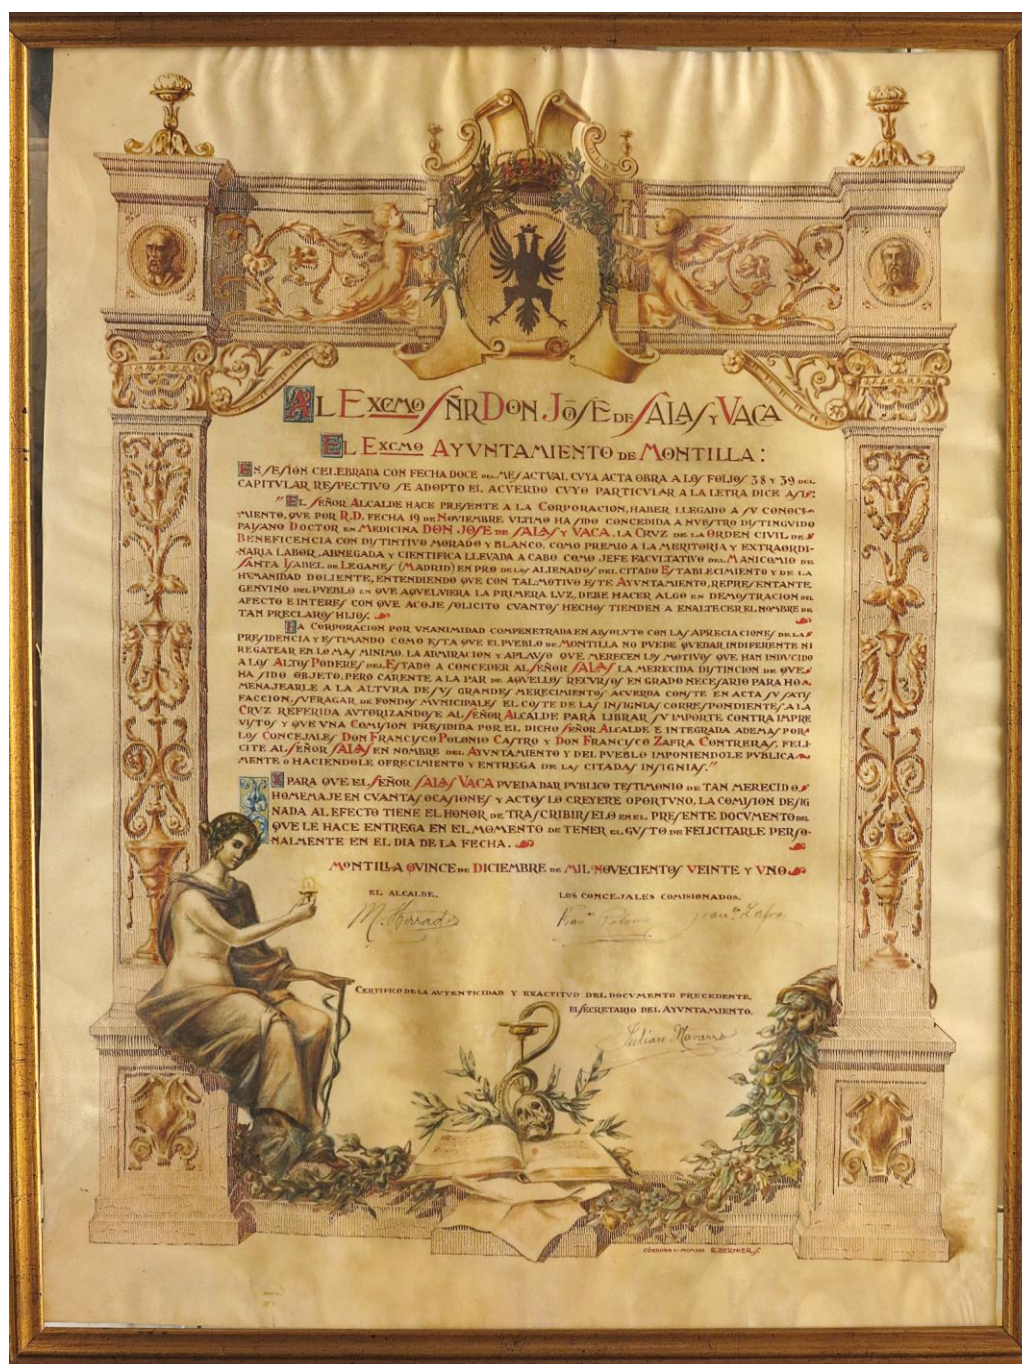 AL EXCMO SÑR DON JOSÉ DE SALAS Y VACA
EL EXCMO AYVNTAMIENTO DE MONTILLA:
EN SESIÓN CELEBRADA CON FECHA DOCE DEL MES ACTVAL CVYA ACTA OBRA A LOS FOLIOS 38 Y 39 DEL
CAPITVLAR RESPECTIVO SE ADOPTO EL ACVERDO CVYO PARTICVLAR A LA LETRA DICE ASI:
"EL SEÑOR ALCALDE HACE PRESENTE A LA CORPORACION, HABER LLEGADO A SV CONOCI-
MIENTO, QVE POR R.D. FECHA 19 DE NOVIEMBRE VLTIMO HA SIDO CONCEDIDA A NVESTRO DISTINGVIDO
PAISANO DOCTOR EN MEDICINA DON JOSE DE SALAS Y VACA, LA CRVZ DE LA ORDEN CIVIL DE
BENEFICENCIA CON DISTINTIVO MORADO Y BLANCO, COMO PREMIO A LA MERITORIA Y EXTRAORDI-
NARIA LABOR, ABNEGADA Y CIENTIFICA LLEVADA A CABO COMO JEFE FACVLTATIVO DEL MANICOMIO DE
SANTA ISABEL DE LEGANES (MADRID) EN PRO DE LOS ALIENADOS DEL CITADO ESTABLECIMIENTO Y DE LA
HVMANIDAD DOLIENTE, ENTENDIENDO QVE CON TAL MOTIVO ESTE AYVNTAMIENTO, REPRESENTANTE
GENVINO DEL PVEBLO EN QVE AQVEL VIERA LA PRIMERA LVZ, DEBE HACER ALGO EN DEMOSTRACION DEL
AFECTO E INTERES CON QVE ACOJE SOLICITO CVANTOS HECHOS TIENDEN A ENALTECER EL NOMBRE DE
TAN PRECLAROS HIJOS.
LA CORPORACION POR VNANIMIDAD COMPENETRADA EN ABSOLVTO CON LAS APRECIACIONES DE LA
PRESIDENCIA Y ESTIMANDO COMO ESTA QVE EL PVEBLO DE MONTILLA NO PVEDE QVEDAR INDIFERENTE NI
REGATEAR EN LO MAS MINIMO, LA ADMIRACION Y APLAVSO QVE MERECEN LOS MOTIVOS QVE HAN INDVCIDO
A LOS ALTOS PODERES DEL ESTADO A CONCEDER AL SEÑOR SALAS LA MERECIDA DISTINCION DE QVE
HA SIDO OBJETO, PERO CARENTE A LA PAR DE AQVELLOS RECVRSOS EN GRADO NECESARIO PARA HO-
MENAJEARLE A LA ALTVRA DE SVS GRANDES MERECIMIENTOS ACVERDA CONSTE EN ACTA SV SATIS
FACCION, SVFRAGAR DE FONDOS MVNICIPALES EL COSTE DE LAS INSIGNIAS CORRESPONDIENTES A LA
CRVZ REFERIDA AVTORIZANDOSE AL SEÑOR ALCALDE PARA LIBRAR SV IMPORTE CONTRA IMPRE
VISTOS Y QVE VNA COMISION PRESIDIDA POR EL DICHO SEÑOR ALCALDE E INTEGRADA ADEMAS POR
LOS CONCEJALES DON FRANCISCO POLONIO CASTRO Y DON FRANCISCO ZAFRA CONTRERAS, FELI-
CITE AL SEÑOR SALAS EN NOMBRE DEL AYVNTAMIENTO Y DEL PVEBLO IMPONIENDOLE PVBLICA
MENTE O HACIENDOLE OFRECIMIENTO Y ENTREGA DE LAS CITADAS INSIGNIAS."
I PARA QVE EL SEÑOR SALAS VACA PVEDA DAR PVBLICO TESTIMONIO DE TAN MERECIDO
HOMENAJE EN CVANTAS OCASIONES Y ACTOS LO CREYERE OPORTVNO, LA COMISION DESIG
NADA AL EFECTO TIENE EL HONOR DE TRASCRIBIRSELO EN EL PRESENTE DOCVMENTO DEL
QVE LE HACE ENTREGA EN EL MOMENTO DE TENER EL GVSTO DE FELICITARLE PERSO-
NALMENTE EN EL DIA DE LA FECHA.
MONTILLA QVINCE DE DICIEMBRE DE MIL NOVECIENTOS VEINTE Y VNO
EL ALCALDE, LOS CONCEJALES COMISIONADOS,
M. Herrador Fran.co Polonio Fran.co Zafra
CERTIFICO DE LA AVTENTICIDAD Y EXACTITVD DEL DOCVMENTO PRECEDENTE,
EL SECRETARIO DEL AYVNTAMIENTO,
Julian Navarro
CÓRDOBA R. BERNIER